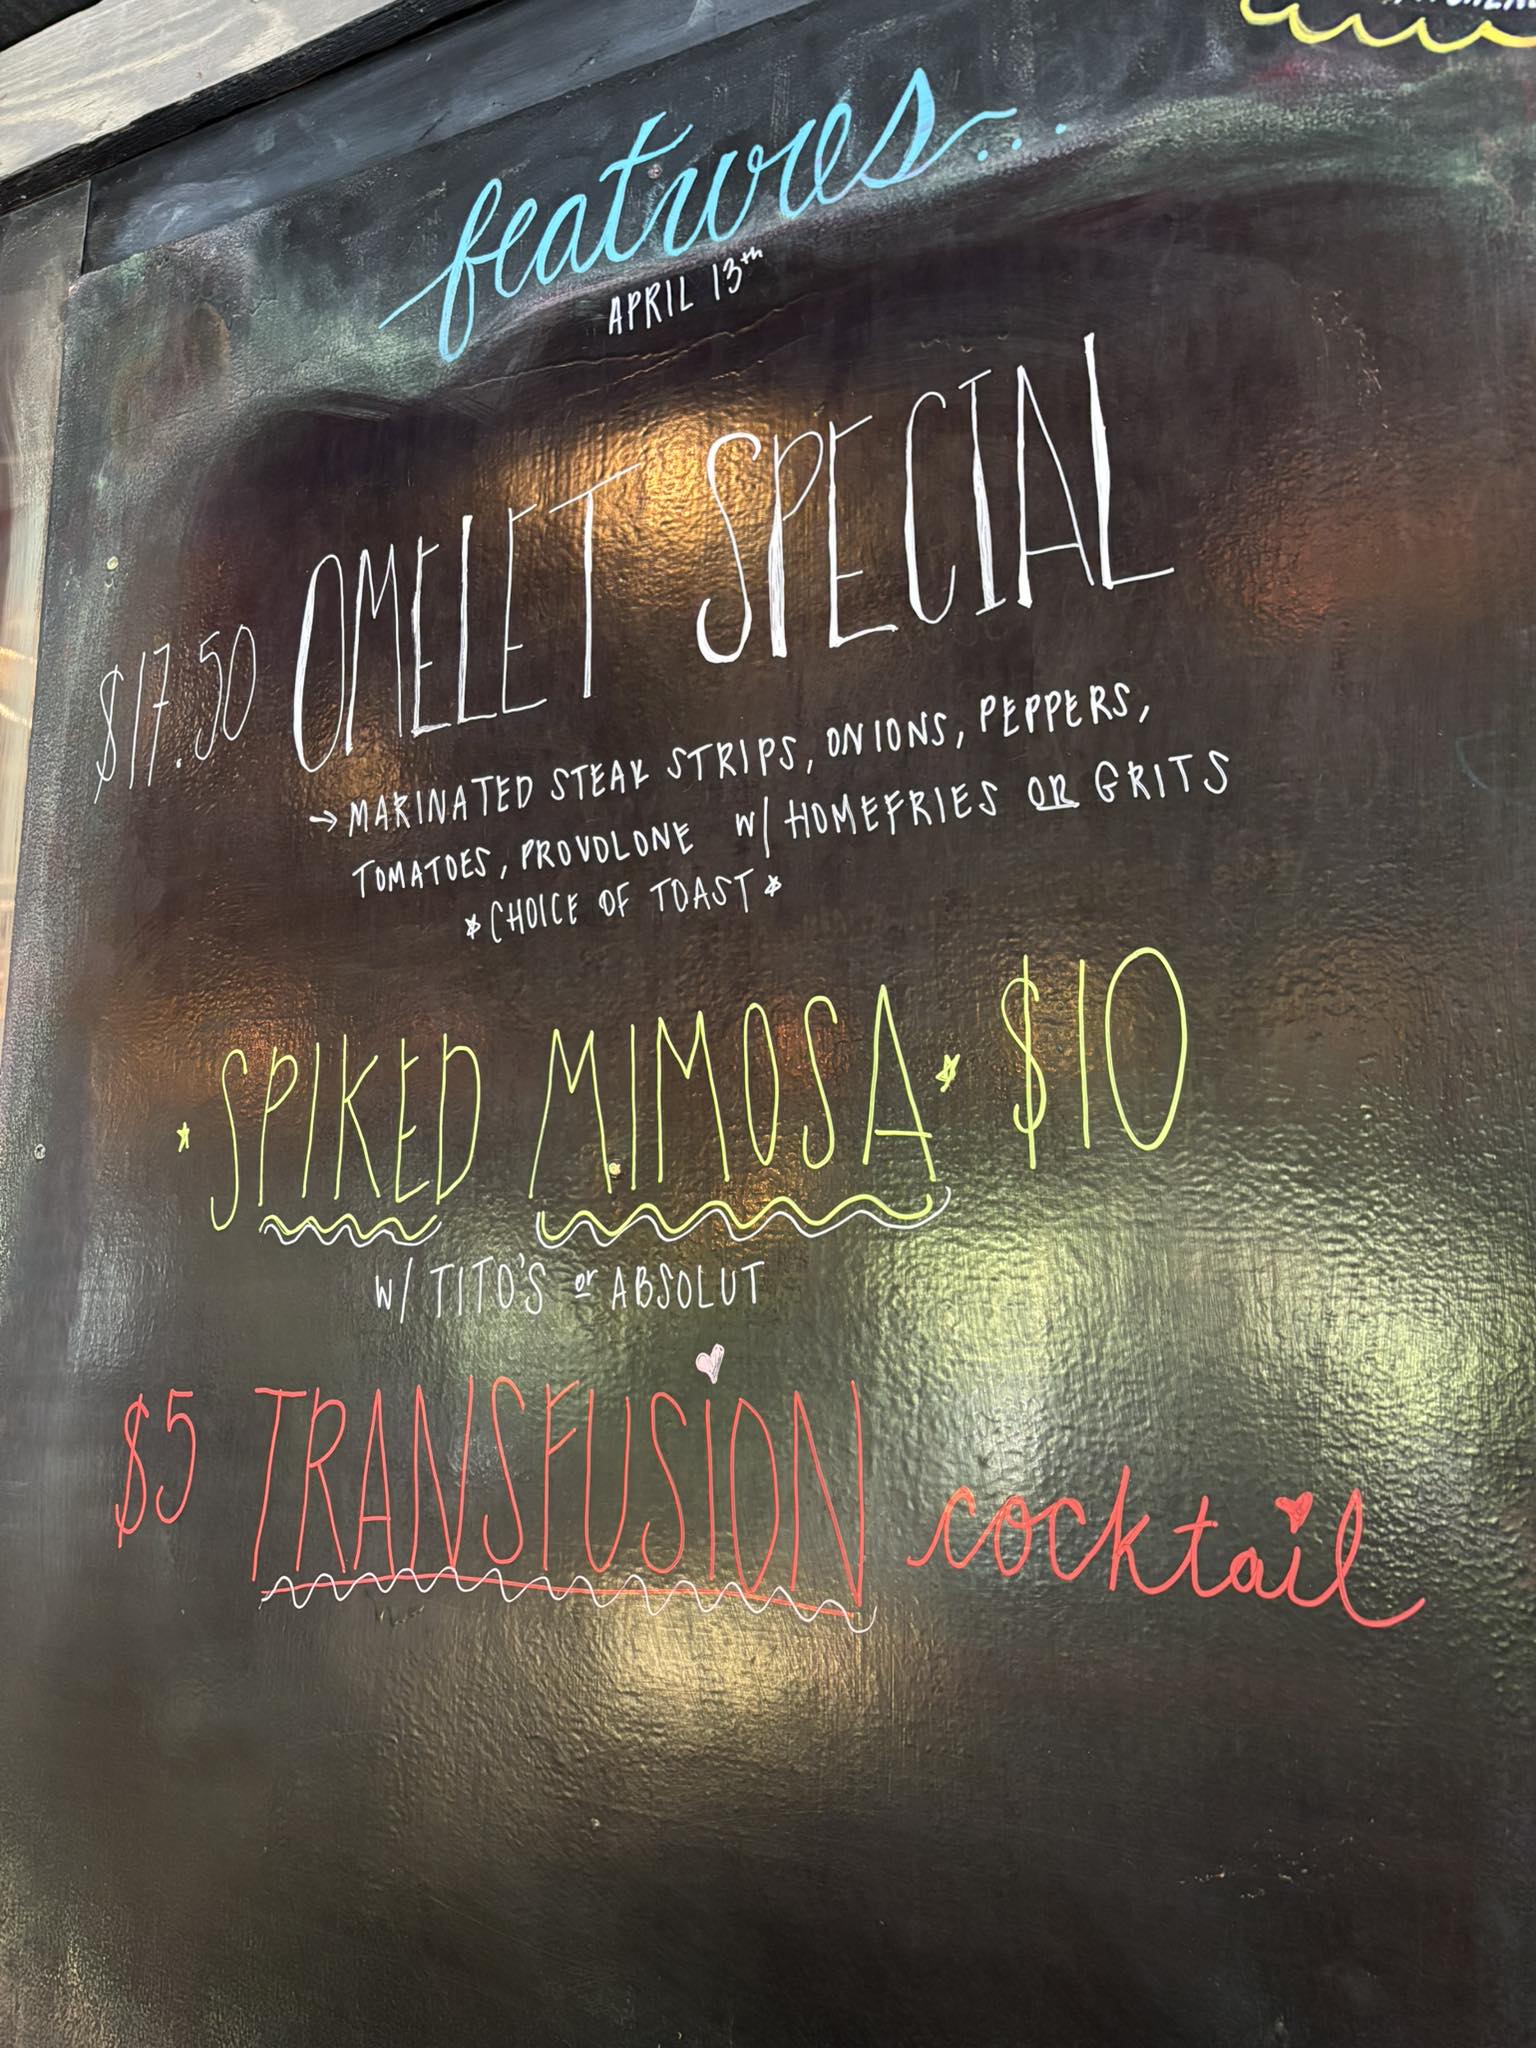 features...
APRIL 13th
$17.50 OMELET SPECIAL
→ MARINATED STEAK STRIPS, ONIONS, PEPPERS,
TOMATOES, PROVOLONE W/ HOMEFRIES OR GRITS
*CHOICE OF TOAST*
SPIKED MIMOSA $10
W/ TITO'S or ABSOLUT
$5 TRANSFUSION cocktail